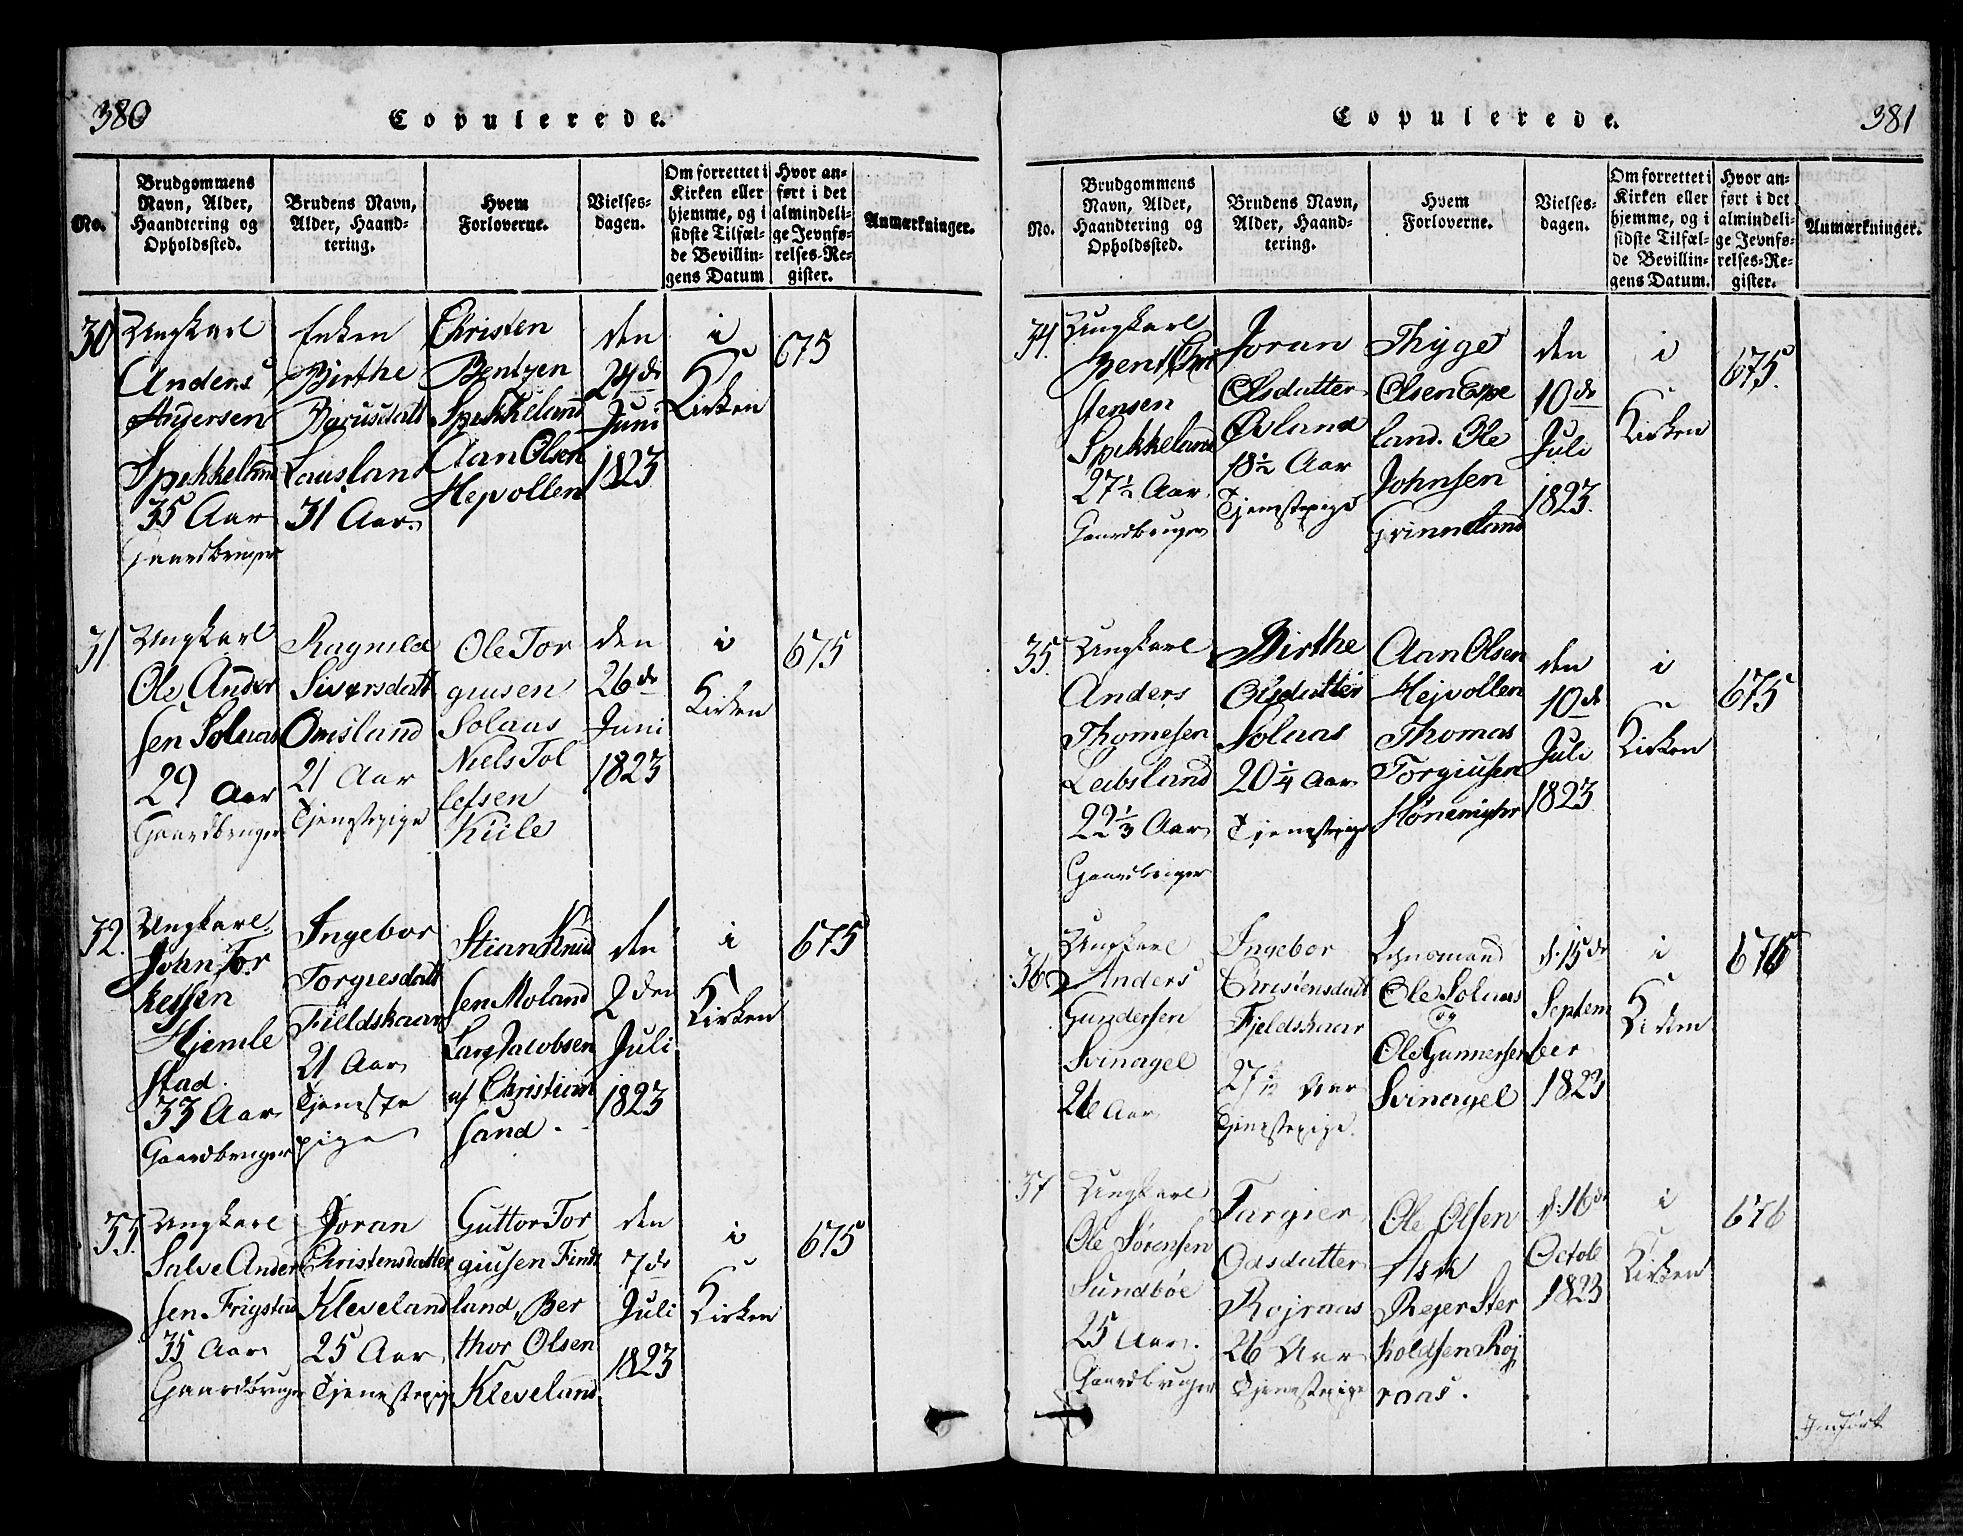 380
Copulerede.
No.
Brudgommens
Navn, Alder,
Haandtering og
Opholdssted.
Brudens Navn,
Alder, Haand-
tering.
Hvem
Forloverne.
Vielses-
dagen.
Om forrettet i
Kirken eller
hjemme, og i
sidste Tilfæl-
de Bevillin-
gens Datum
Hvor an-
ført i det
almindeli-
ge Jevnfø-
relses-Re-
gister.
Anmærkninger.
30
Ungkarl
Anders
Andersen
Spekkeland
35 Aar
Gaardbruger
Enken
Birthe
Lausland
31 Aar
Christen
Bentzen
Spekkeland
Aan Olsen
Hejvollen
den
24de
Juni
1823
i
Kirken
675
31
Ungkarl
Ole Ander
sen Solaas
29 Aar
Gaardbruger
Ragnild
Siversdatt
Omsland
21 Aar
Tjenestepige
Ole Tor
giusen
Solaas
Niels Tol
lefsen
Kiile
den
26de
Juni
1823
i
Kirken
675
32.
Ungkarl
John Tor
kelsen
Hjemle
stad.
33 Aar
Gaardbruger
Ingebor
Torgiesdatt
Fieldskaar
21 Aar
Tjeneste
pige
Stian Knud
sen Moland
Lars Jacobsen
af Christian
sand.
den
2den
Juli
1823
i
Kirken
675
33.
Ungkarl
Salve Ander
sen Frigstad
35 Aar
Gaardbruger
Joran
Christensdatter
Kleveland
25 Aar
Tjenestepige
Guttor Tor
giusen Finds
land, Ber
thor Olsen
Kleveland.
den
7de
Juli
1823
i
Kirken
675
381
Copulerede.
No.
Brudgommens
Navn, Alder,
Haandtering og
Opholdssted.
Brudens Navn,
Alder, Haand-
tering.
Hvem
Forloverne.
Vielses-
dagen.
Om forrettet i
Kirken eller
hjemme, og i
sidste Tilfæl-
de Bevillin-
gens Datum.
Hvor an-
ført i det
almindeli-
ge Jevnfø-
relses-Re-
gister.
Anmærkninger.
34.
Ungkarl
Bent Chri
stensen
Spekkeland
27½ Aar
Gaardbruger
Joran
Olsdatter
Øvland
18½ Aar
Tjenestepige
Thyge
Olsen Espe
land. Ole
Johnsen
Grinneland
den
10de
Juli
1823.
i
Kirken
675.
35.
Ungkarl
Anders
Thomesen
Leibsland
22⅓ Aar
Gaardbruger
Birthe
Olsdatter
Solaas
20¼ Aar
Tjenestepige
Aan Olsen
Hejvollen
Thomas
Torgiusen
den
10de
Juli
1823
i
Kirken
675
36
Ungkarl
Anders
Gundersen
Svinagel
26 Aar
Ingebor
Christensdatt
Fjeldskaar
Aar
Tjenestepige.
Lensmand
Ole Solaas
og
Ole Gunnersen
Svinagel
d. 15de
Septem
ber
1823
i
Kirken
676
37
Ungkarl
Ole Sørensen
Sundbøe
25 Aar.
Gaardbruger
Targier
Odsdatter
Rojraas
26 Aar
Tjenestepige
Ole Olsen
Ask
Rejer Ster
koldsen Roj
raas.
d. 16de
Octob
1823
i
Kirken
676
Indført